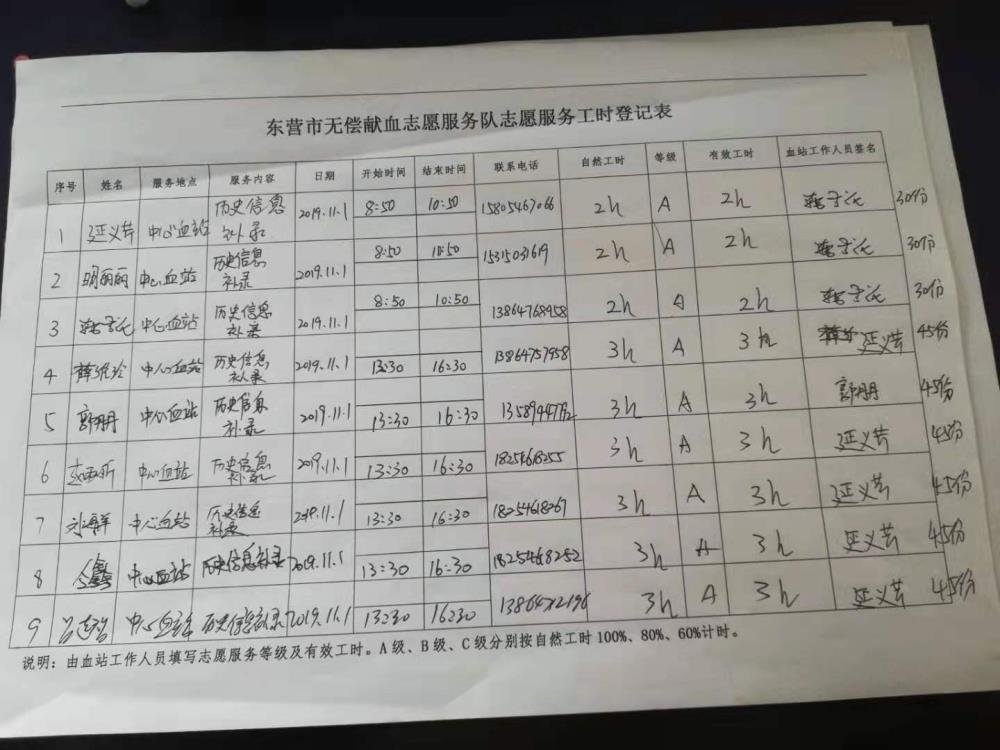 东营市无偿献血志愿服务队志愿服务工时登记表
序号 姓名 服务地点 服务内容 日期 开始时间 结束时间 联系电话 自然工时 等级 有效工时 血站工作人员签名
1 延义芳 中心血站 历史信息补录 2019.11.1 8:50 10:50 15805467066 2h A 2h 30份
2 明丽丽 中心血站 历史信息补录 2019.11.1 8:50 10:50 2h A 2h 30份
3 中心血站 历史信息补录 2019.11.1 8:50 10:50 13864768958 2h A 2h 30份
4 中心血站 历史信息补录 2019.11.1 13:30 16:30 13864757958 3h A 3h 延义芳 45份
5 郭丹 中心血站 历史信息补录 2019.11.1 13:30 16:30 3h A 3h 郭丹 45份
6 中心血站 历史信息补录 2019.11.1 13:30 16:30 18254618255 3h A 3h 延义芳 45份
7 刘海群 中心血站 历史信息补录 2019.11.1 13:30 16:30 18254618267 3h A 3h 延义芳 45份
8 中心血站 历史信息补录 2019.11.1 13:30 16:30 18254618252 3h A 3h 延义芳 45份
9 中心血站 历史信息补录 2019.11.1 13:30 16:30 3h A 3h 延义芳 45份
说明：由血站工作人员填写志愿服务等级及有效工时。A级、B级、C级分别按自然工时100%、80%、60%计时。